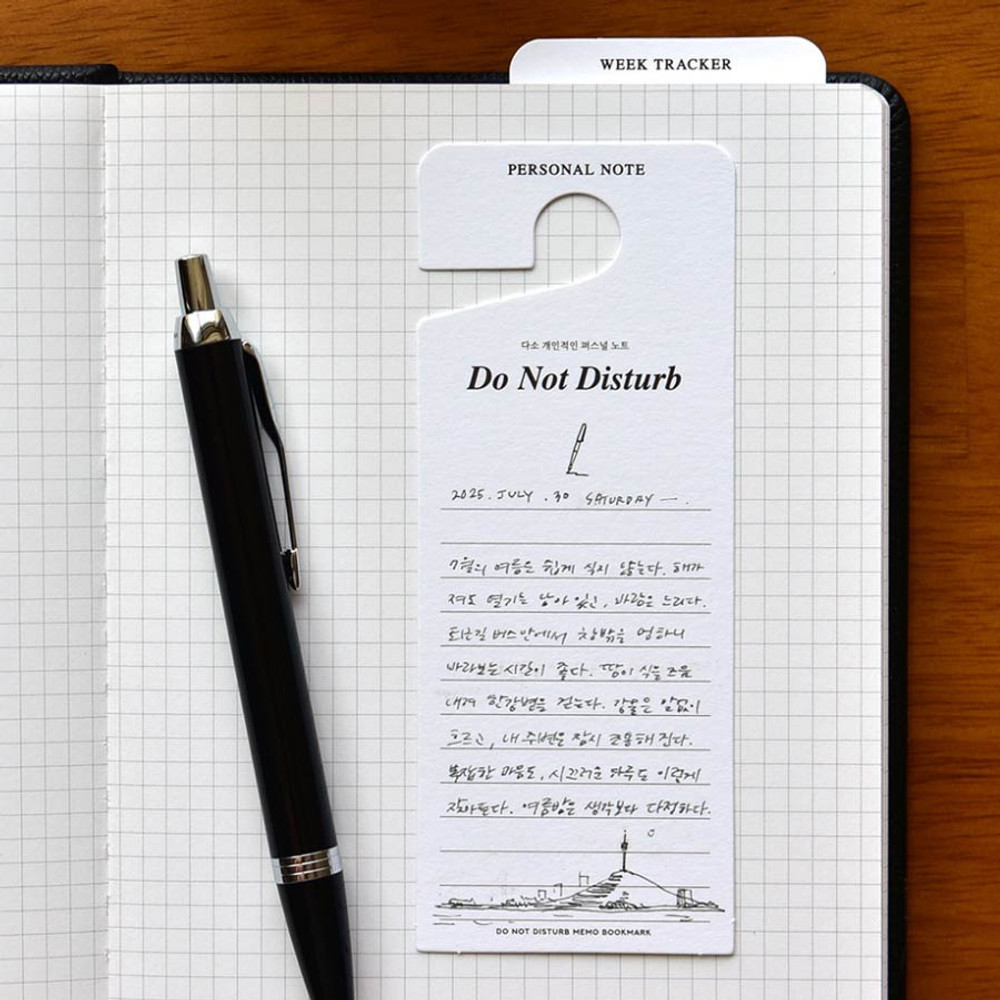 WEEK TRACKER
PERSONAL NOTE
다소 개인적인 퍼스널 노트
Do Not Disturb
2025. JULY . 30 SATURDAY — .
7월의 여름은 쉽게 식지 않는다. 해가
져도 열기는 남아 있고, 바람은 느리다.
퇴근길 버스 안에서 창밖을 멍하니
바라보는 시간이 좋다. 땀이 식을 즈음
내려 한강변을 걷는다. 강물은 말없이
흐르고, 내 주변은 잠시 조용해 진다.
복잡한 마음도, 시끄러운 하루도 이렇게
잦아든다. 여름밤은 생각보다 다정하다.
DO NOT DISTURB MEMO BOOKMARK